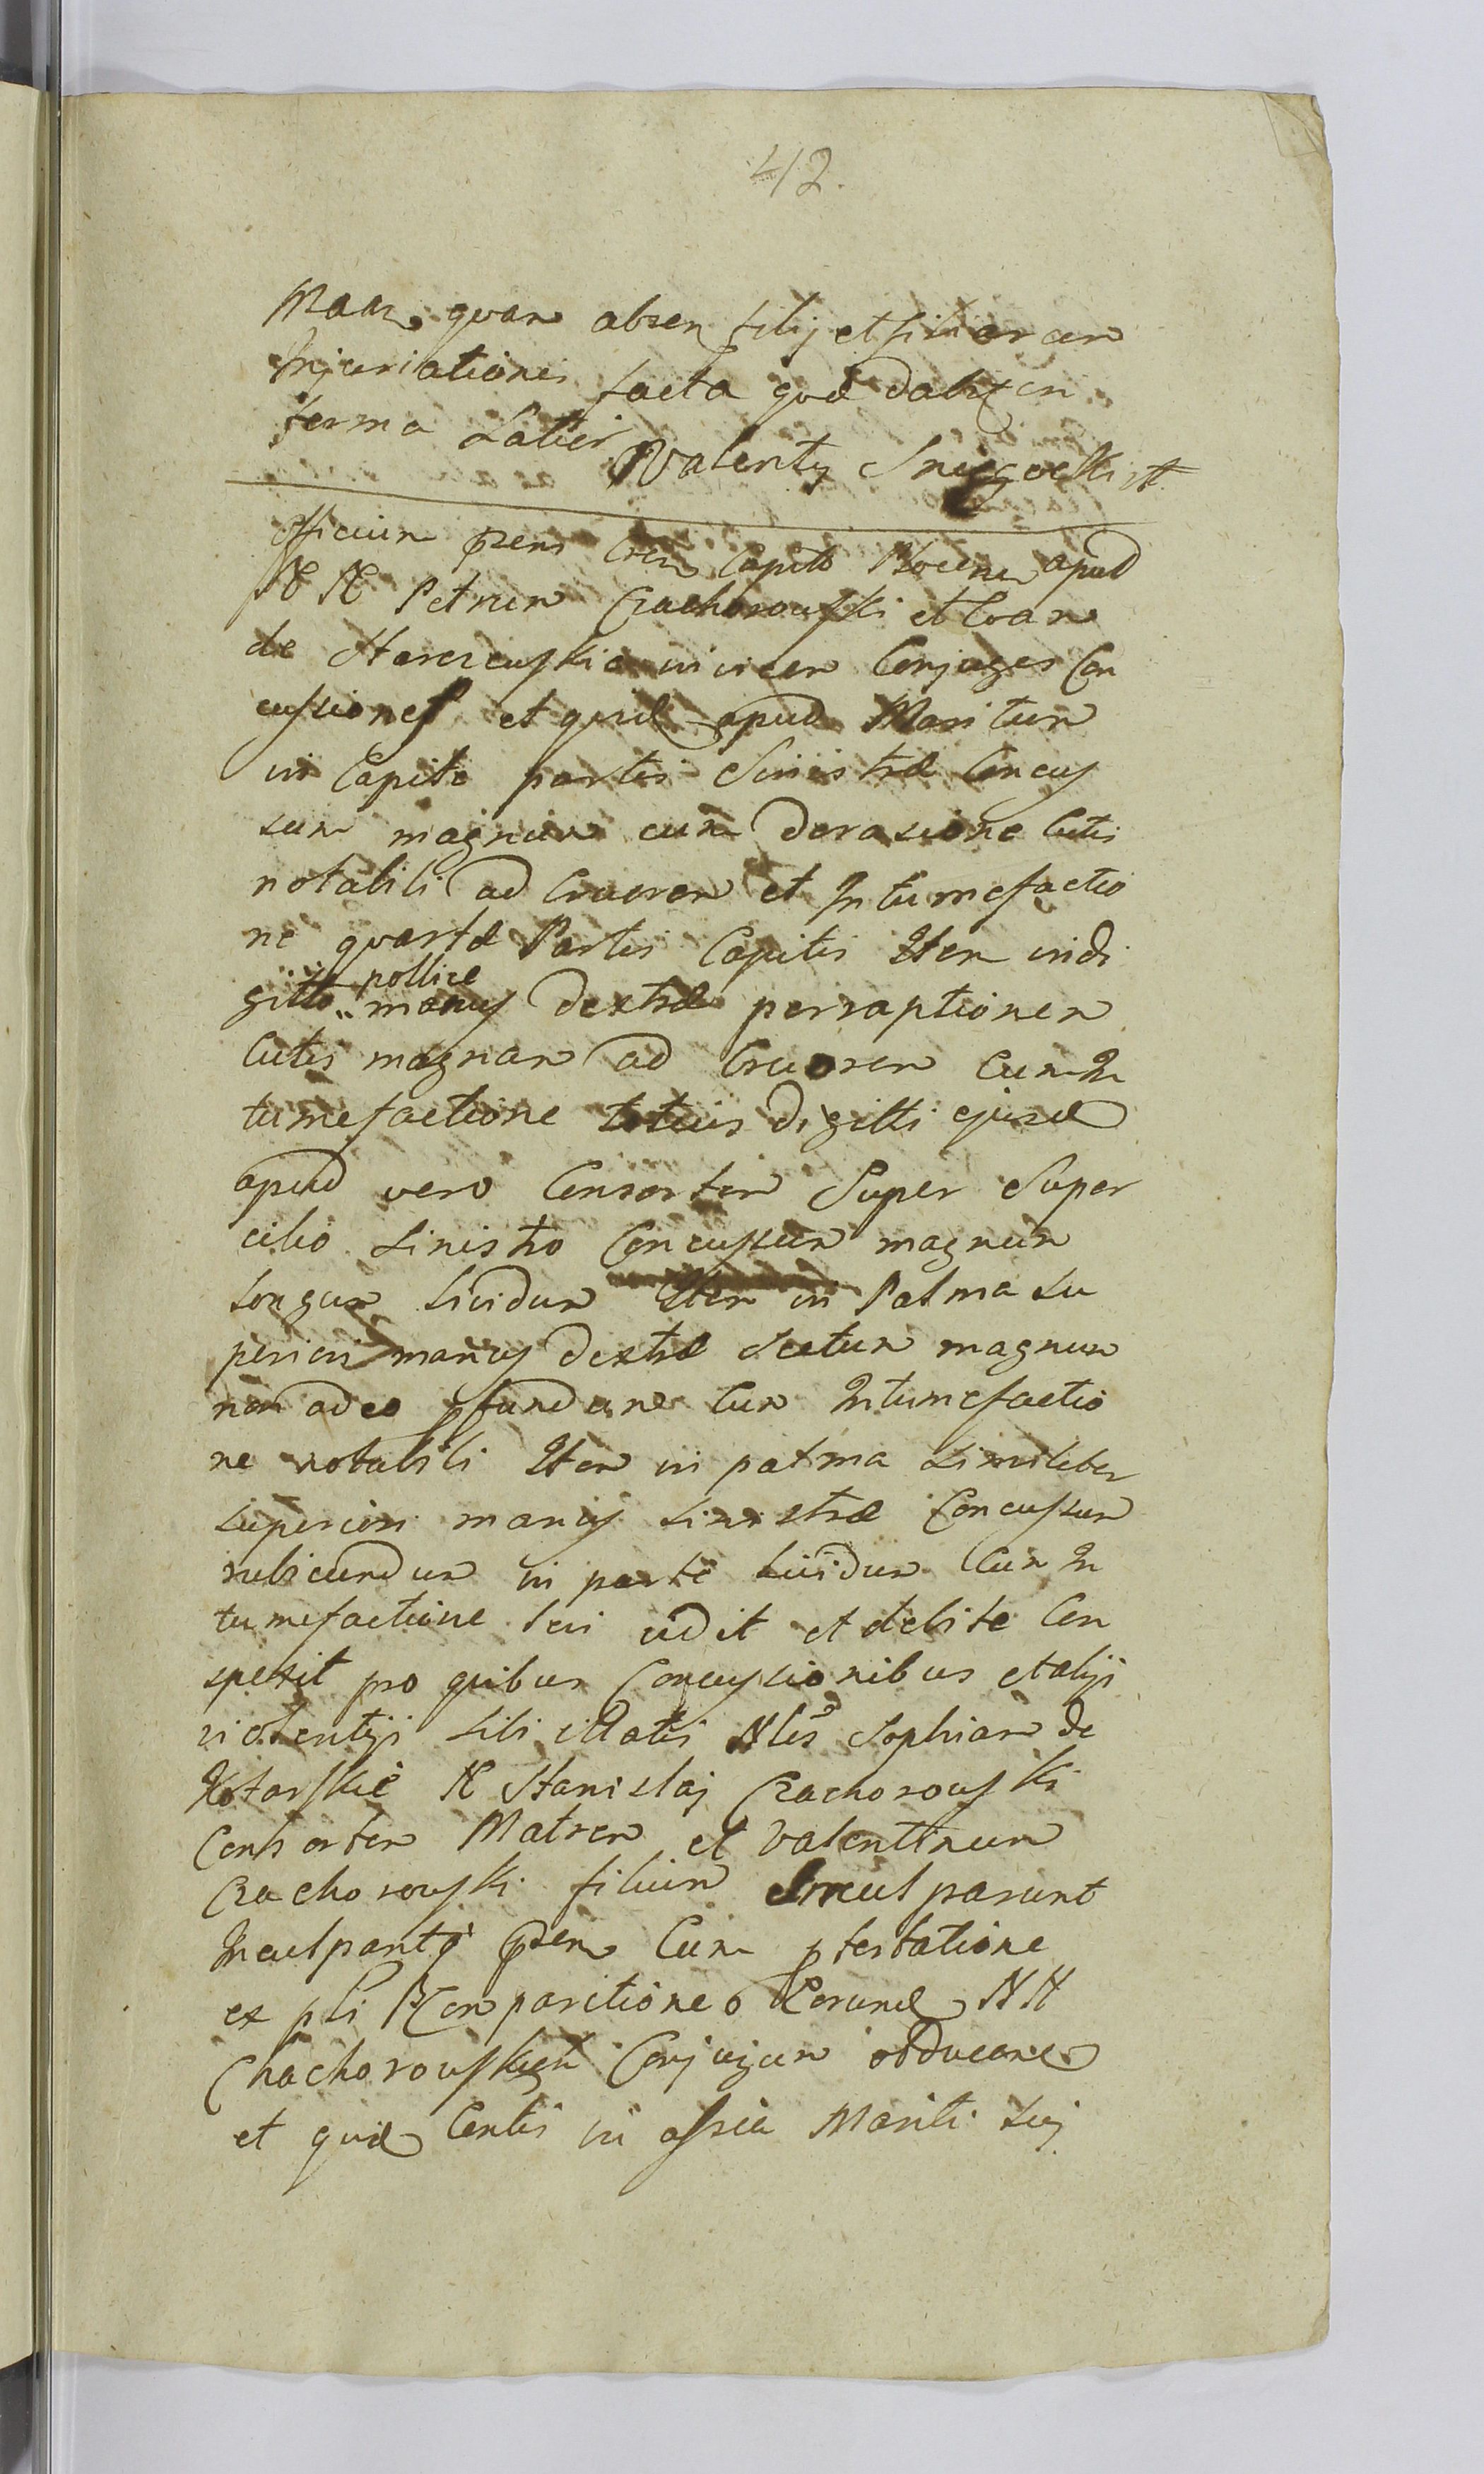 412.
quam absen filij et filiar cum
Injuriationis facta quae dabit in
forma Latior Walenty
Officium praens Cren Capite Plocen apud
N N Petrum Czachorowski et Evam
de invicem Conjuges Con
cussiones et quid apud Maritum
in Capite partis Sinistrae Concus
sum magnum cum derasione Cutis
notabili ad Cruorem et Intumefactio
ne quartae Partis Capitis Item in di
gitto pollice manus dextrae perraptionem
Cutis magnam ad Cruorem Cum In
tumefactione totius digitti ejusd
apud vero Consortem Super Super
cilio sinistro Concussum magnum
longum lividum Item in Palma su
periori manus dextrae Sectum magnum
non adeo pfundum Cum Intumefactio
ne notabili Item in palma similiter
superiori manus sinistrae Concussum
rubicundum in parte lividum Cum In
tumefactione sui vidit et debite Con
spexit pro quibus Concussionibus et alijs
violentijs sibi illatis Nles Sophiam de
Kotarskie N Stanislaj Czachorowski
Consortem Matrem et Valentinum
Czachorowski filium Inculparunt
Inculpantq praen Cum ptestatione
ex pti Comparitione Eorund NN
Chachorowskich Conjugum
et quid Contis in assia Mariti sui